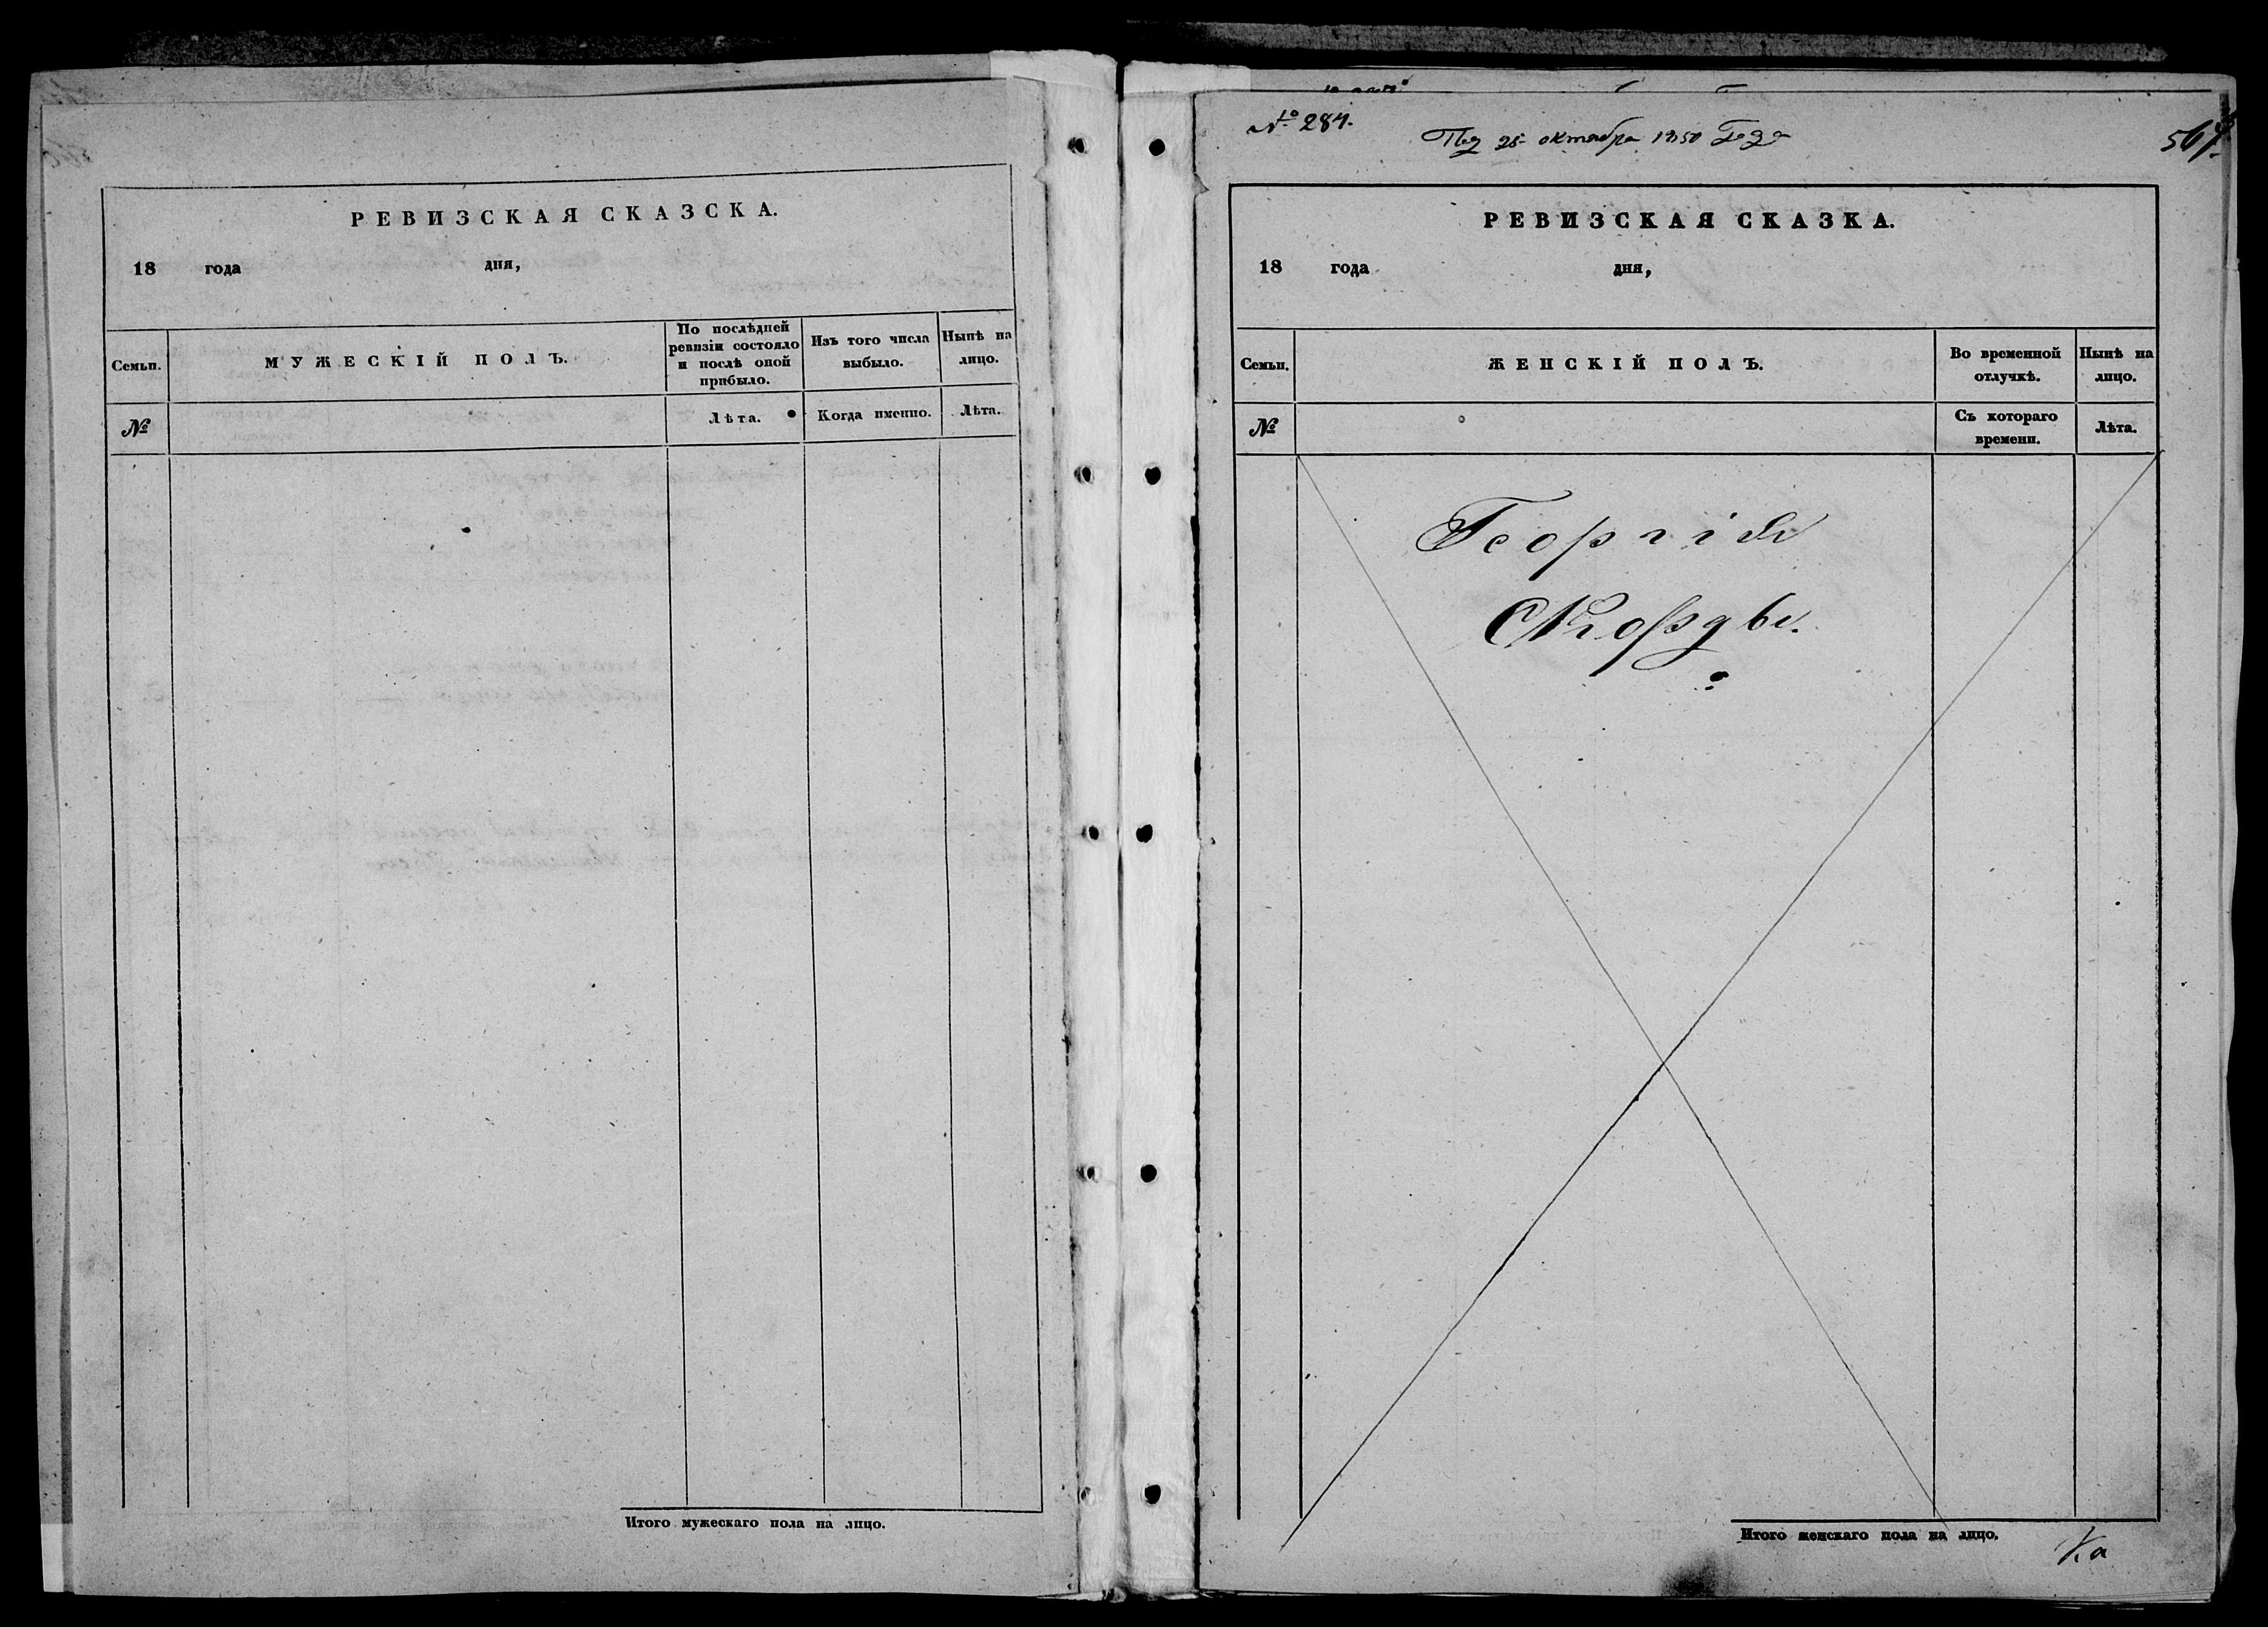 РЕВИЗСКАЯ СКАЗСКА.
18 года дня,
Семьи.
МУЖЕСКІЙ ПОЛЪ.
По послѣдней ревизіи состояло и послѣ оной прибыло.
Изъ того числа выбыло.
Нынѣ на лицо.
№
Лѣта.
Когда именно.
Лѣта.
Итого мужескаго пола на лицо.
№ 284.
октября 1850 года
РЕВИЗСКАЯ СКАЗКА.
18 года дня,
Семьи.
ЖЕНСКІЙ ПОЛЪ.
Во временной отлучкѣ.
Нынѣ на лицо.
№
Съ котораго времени.
Лѣта.
Георгія
Итого женскаго пола на лицо.
Ка